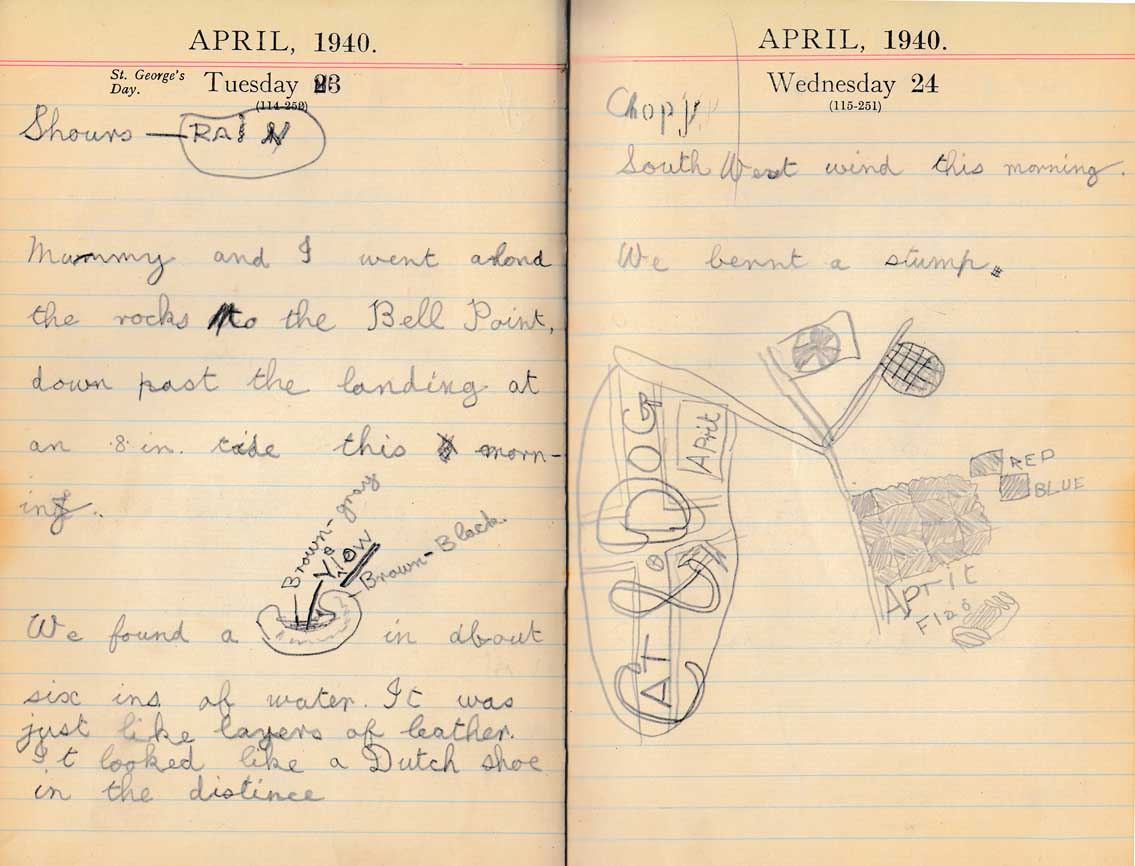 APRIL, 1940.
St. George's Day. Tuesday 23
(114-252)
Shours — RAIN
Mummy and I went alond
the rocks to the Bell Point,
down past the landing at
an 8 in. tide this morn-
ing.
Brown-gray
Yelow
Brown-Black.
We found a in about
six ins of water. It was
just like layers of leather.
It looked like a Dutch shoe
in the distince
APRIL, 1940.
Wednesday 24
(115-251)
Chopy
South West wind this morning.
We bernt a stump.
CAT & DOG
RED
BLUE